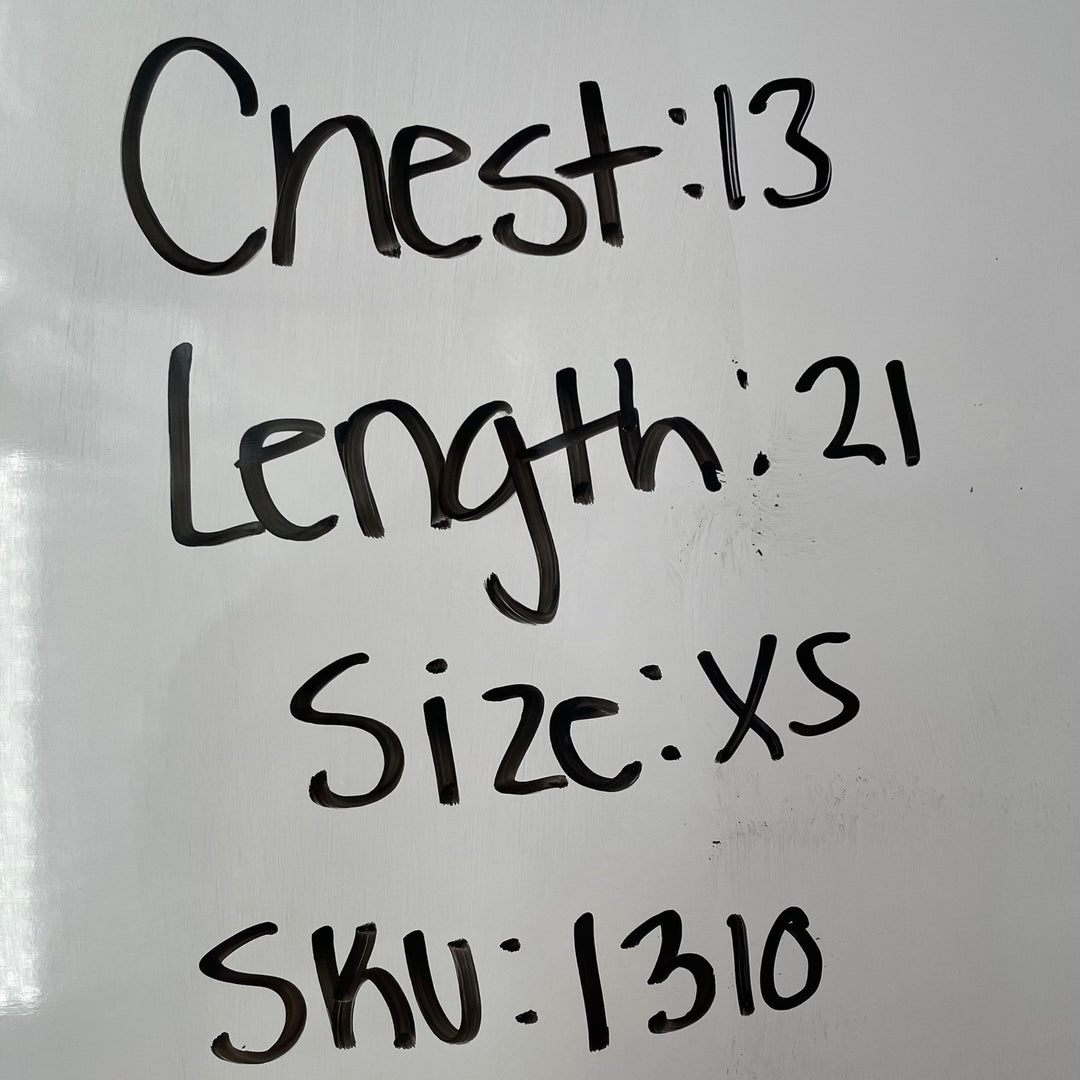 Chest:13
Length:21
Size:XS
SKU:1310